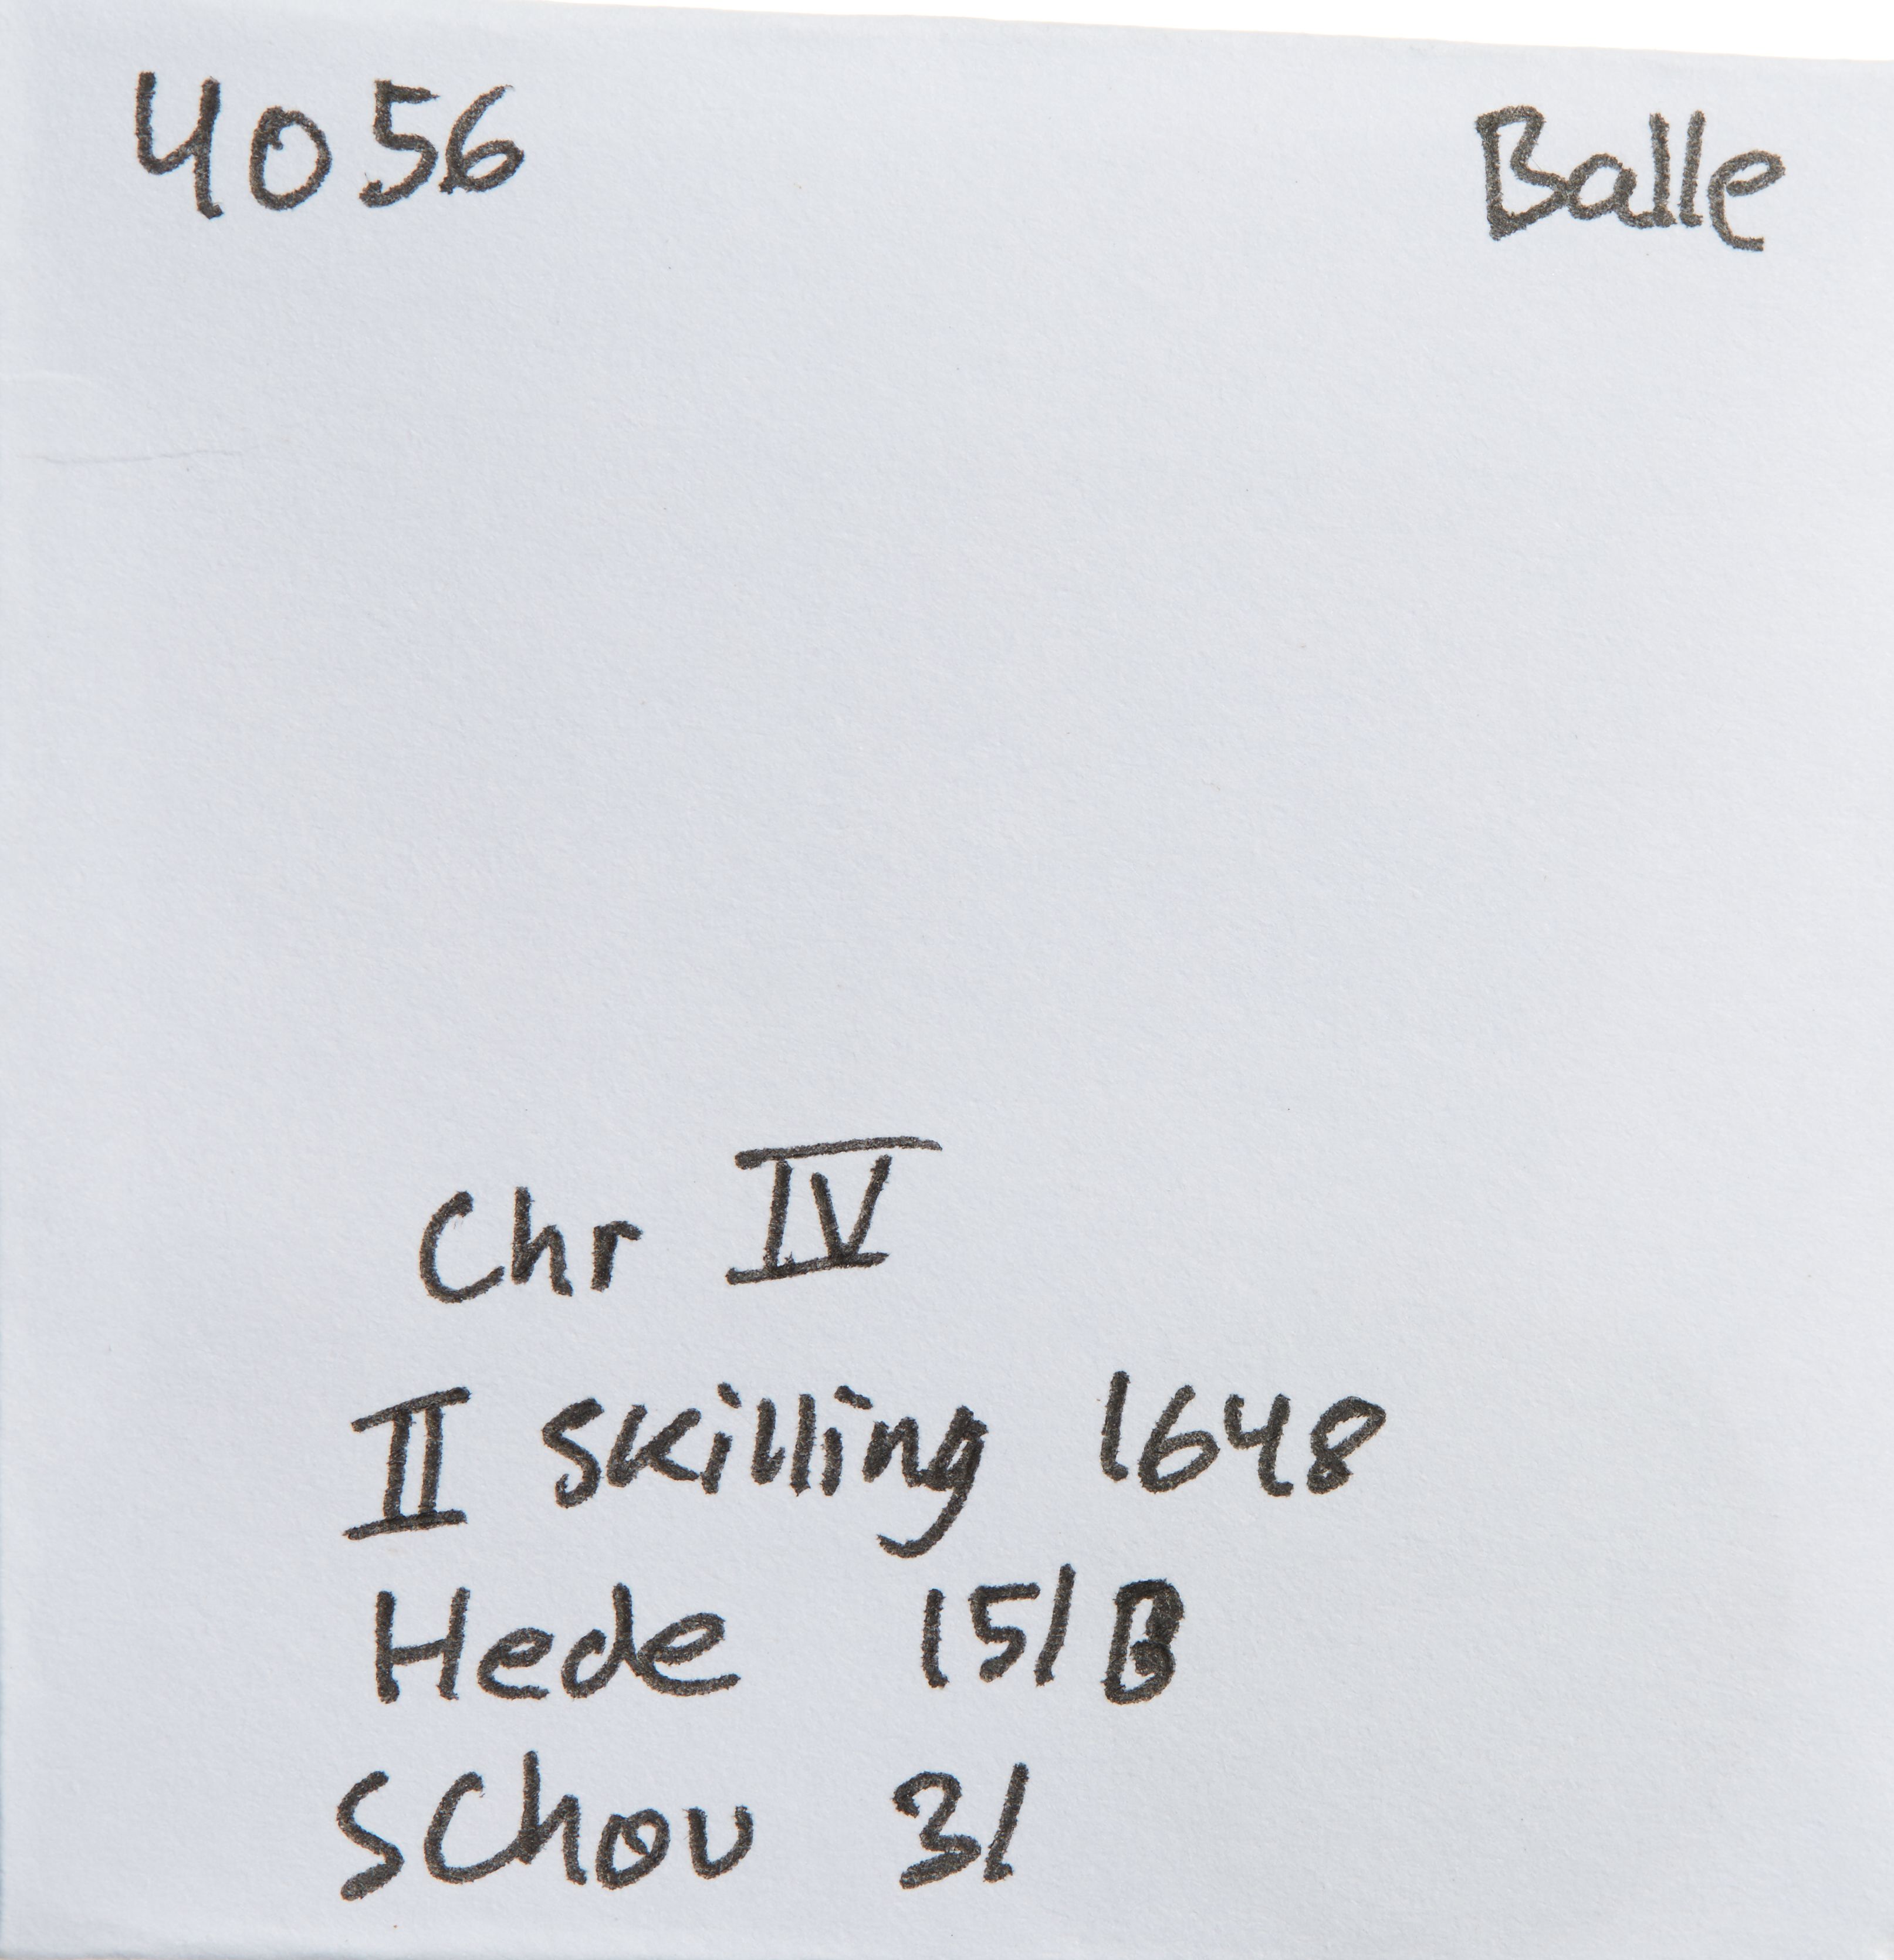 4056 Balle
Chr IV
II skilling 1648
Hede 151B
Schou 31